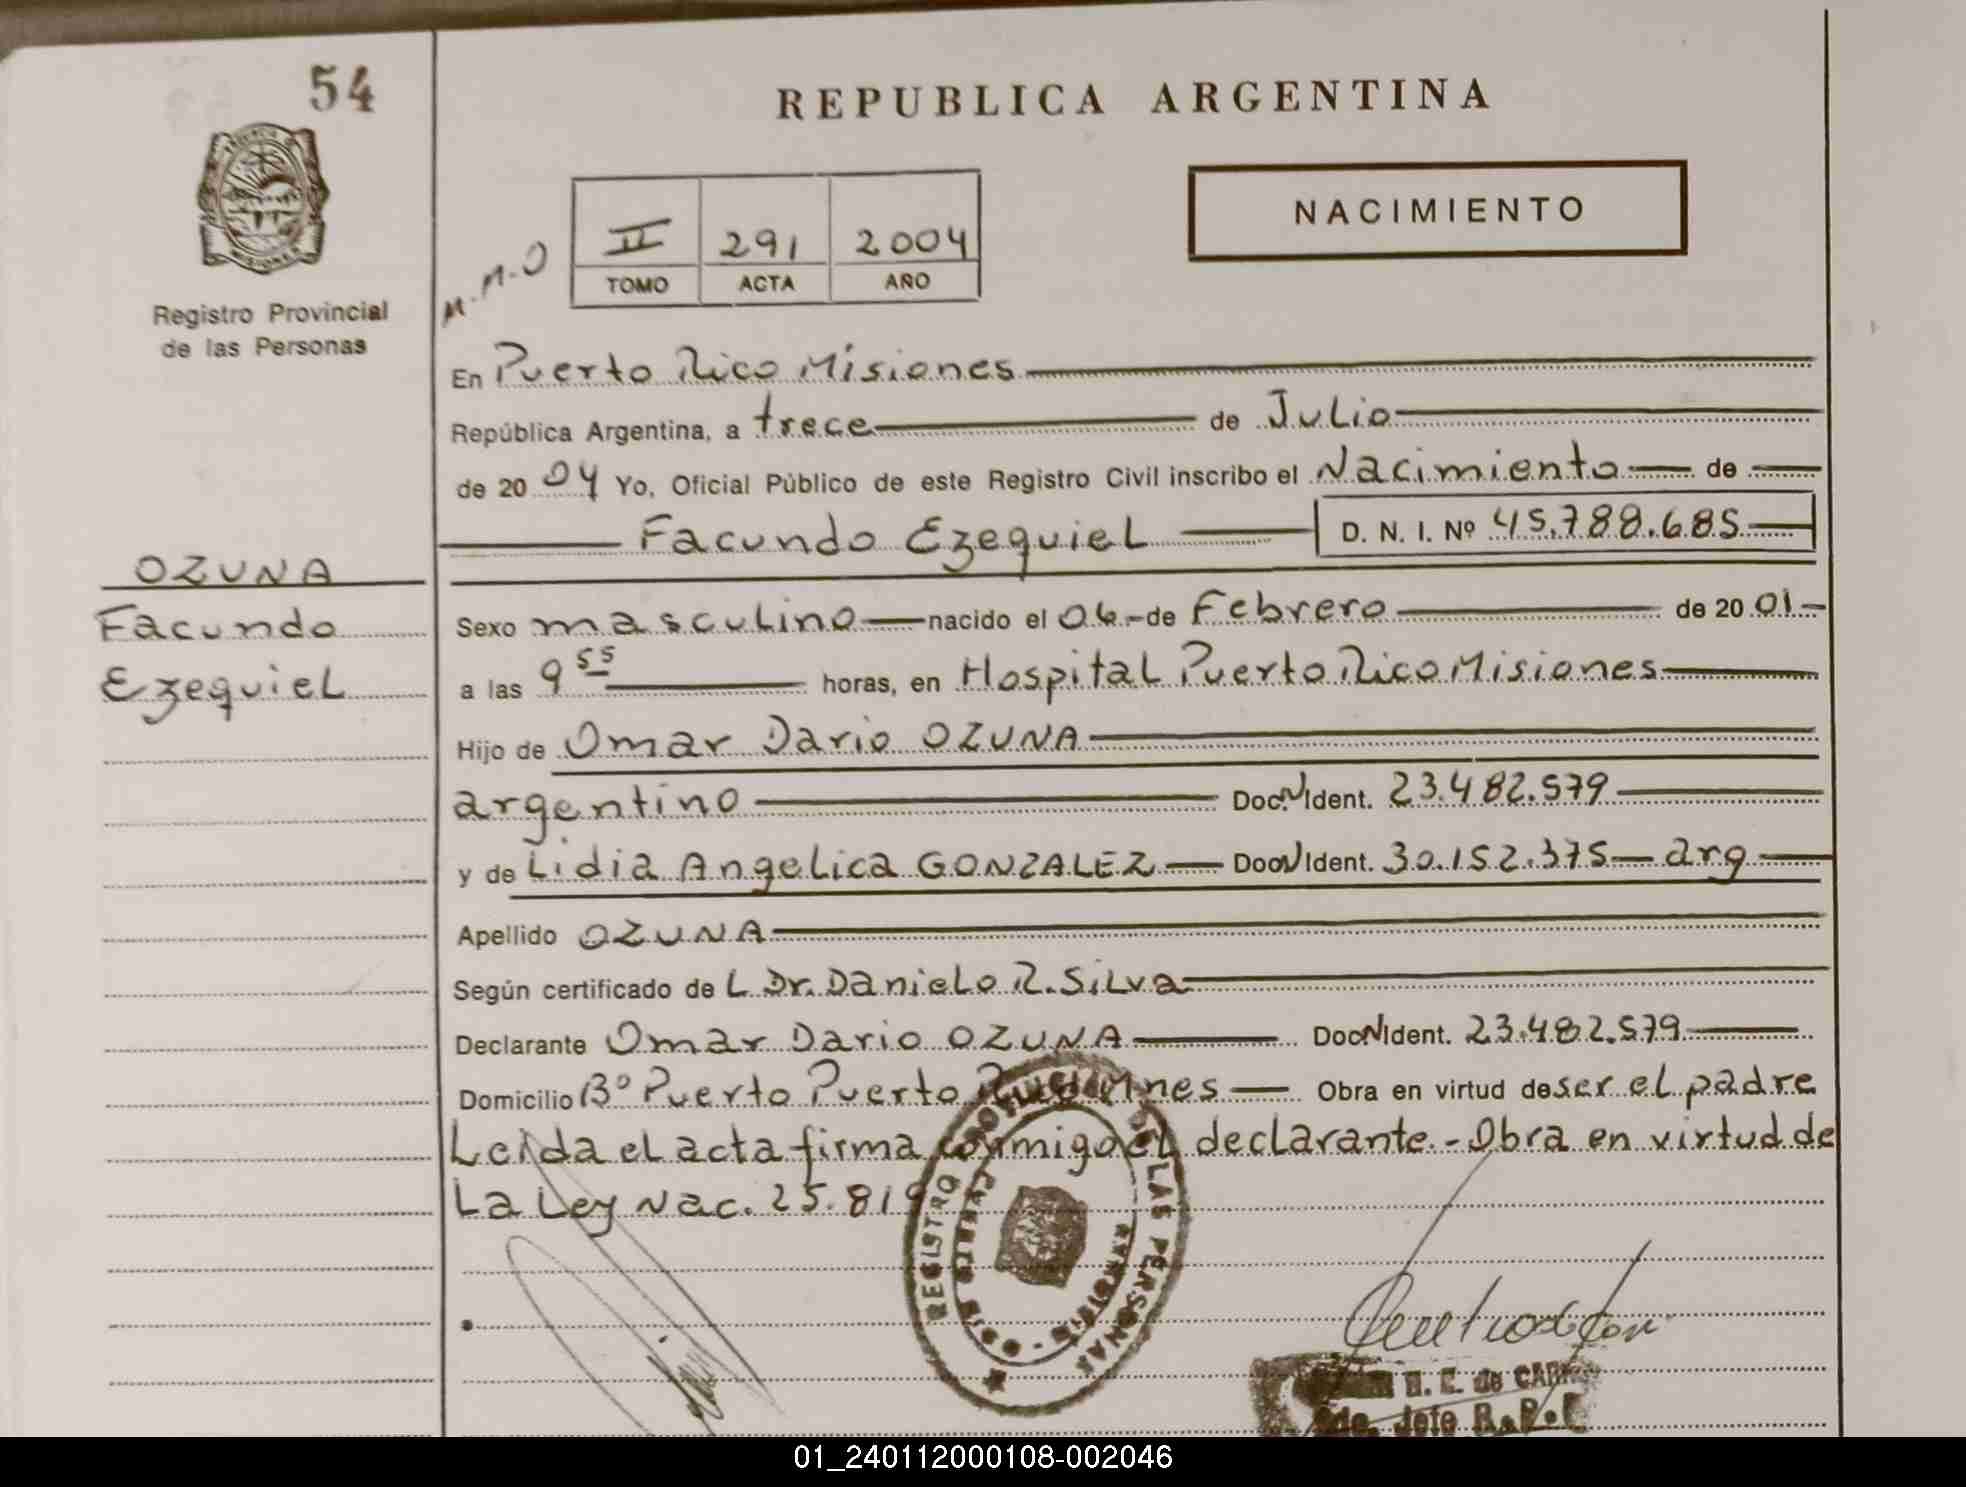 54
REPUBLICA ARGENTINA
NACIMIENTO
II 291 2004
TOMO ACTA AÑO
M.N.O
Registro Provincial
de las Personas
En Puerto Rico Misiones
República Argentina, a trece de Julio
de 2004 Yo, Oficial Público de este Registro Civil inscribo el Nacimiento de
Facundo Ezequiel D. N. I. Nº 45.788.685
OZUNA
Facundo
Ezequiel
Sexo masculino nacido el 06 de Febrero de 2001
a las 9 55 horas, en Hospital Puerto Rico Misiones
Hijo de Omar Dario OZUNA
argentino Doc.N Ident. 23.482.579
y de Lidia Angelica GONZALEZ Doc.N Ident. 30.152.375 arg
Apellido OZUNA
Según certificado de L Dr. Danielo R. Silva
Declarante Omar Dario OZUNA Doc.N Ident. 23.482.579
Domicilio Bº Puerto Puerto Rico Mnes Obra en virtud de ser el padre
Leida el acta firma conmigo el declarante.- Obra en virtud de
La Ley Nac. 25.819
REGISTRO DE LAS PERSONAS
01_240112000108-002046